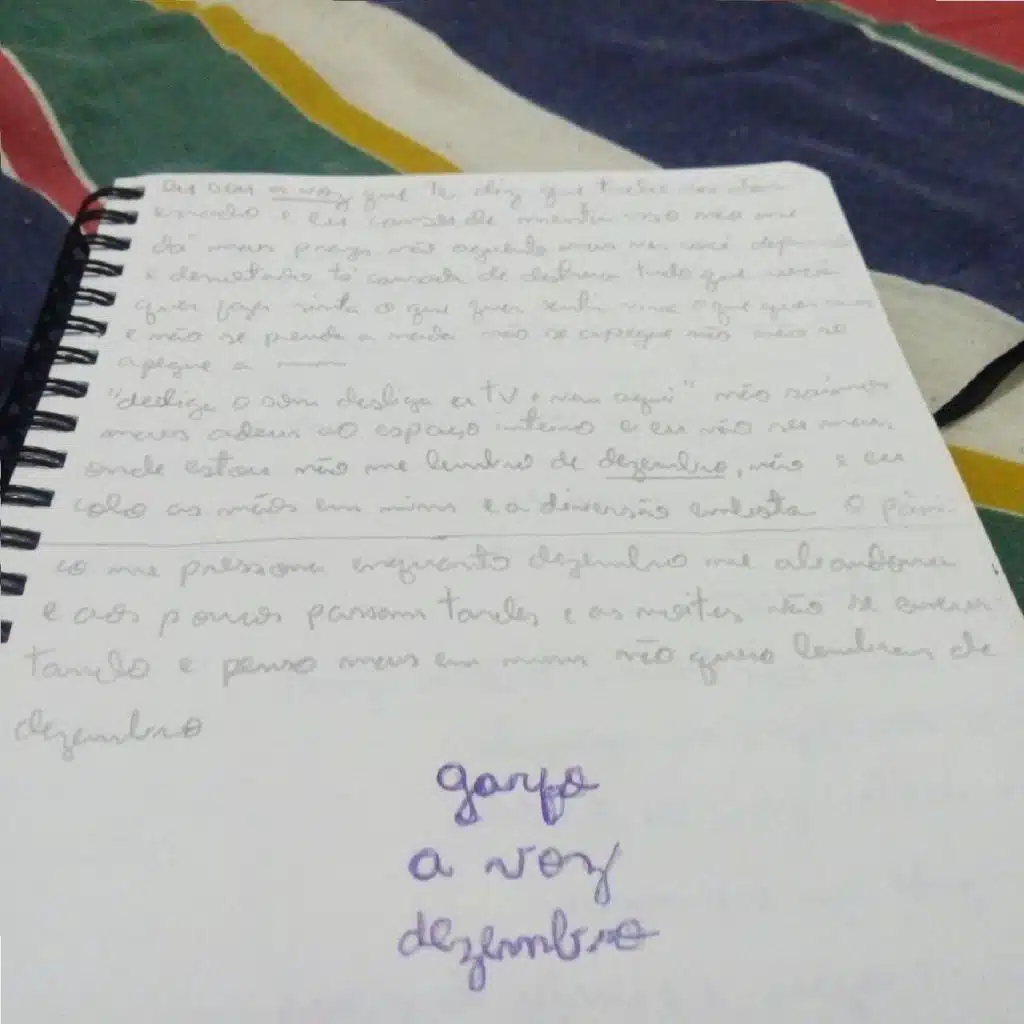 eu sou a voz que te diz que tudo vai dar
errado e eu cansei de mentir isso não me
dá mais prazer não aguento mais ver você
e demotado tô cansada de destruir tudo que você
quer fazer sinta o que quer sentir viva o que quer
e não se prenda a nada não se apegue não não se
apegue a
"desliga o som desliga a TV e vem aqui" não
meus adeus ao espaço inteiro e eu não sei mais
onde estou não me lembro de dezembro, não e eu
colo as mãos em mim e a diversão embota o pâni-
co me pressiona enquanto dezembro me abandona
e aos poucos passam tardes e as noites não se
tando e penso mais em mim não quero lembrar de
dezembro
garfo
a voz
dezembro